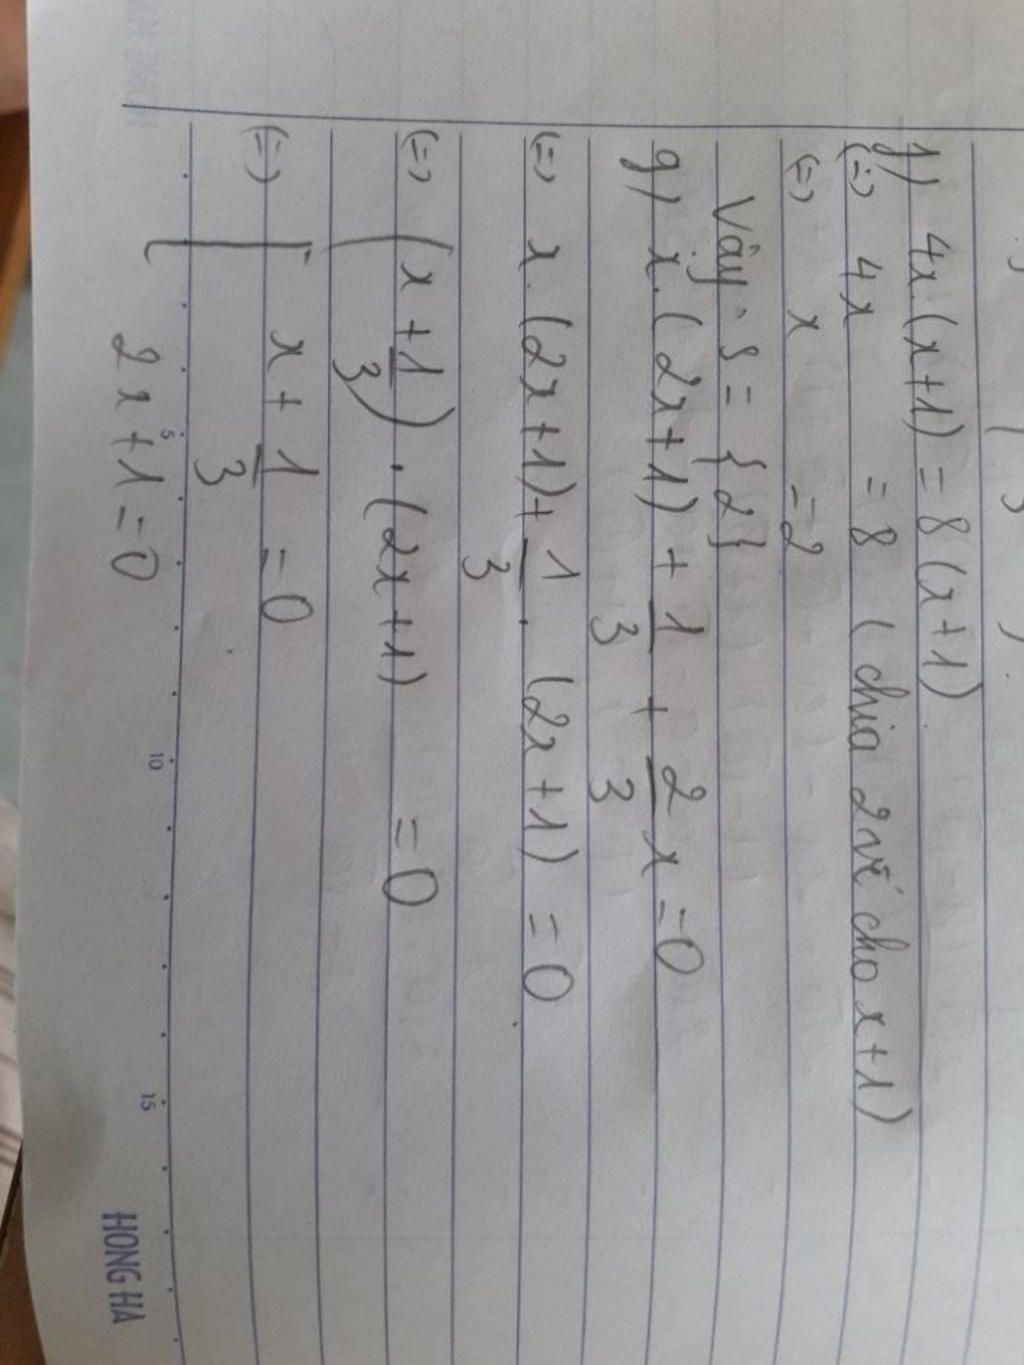 f) 4x.(x+1) = 8(x+1)
(=) 4x = 8 ( chia 2 vế cho x+1)
(=) x = 2
Vậy S = { 2 }
g) x.(2x+1) + 1/3 + 2/3 x = 0
(=) x.(2x+1) + 1/3 . (2x+1) = 0
(=) (x + 1/3) . (2x+1) = 0
(=) [ x + 1/3 = 0
2x+1 = 0
5 10 15
HONG HA